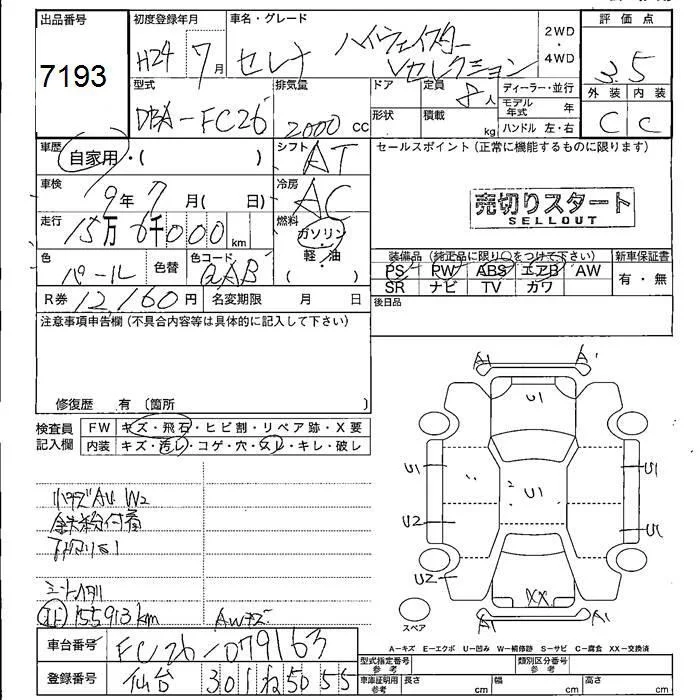 出品番号 初度登録年月 車名・グレード 2WD・4WD 評価点
7193 H24 7月 セレナ ハイウェイスター Vセレクション 3.5
型式 排気量 ドア 定員 8人 ディーラー・並行 外装 内装
形状 積載 kg モデル年式 年
DBA-FC26 2000cc ハンドル 左・右 C C
車歴 自家用・( ) シフト AT セールスポイント(正常に機能するものに限ります)
車検 9年7月( 日) 冷房 AC
売切りスタート
SELLOUT
走行 15万6千000km 燃料 ガソリン・軽油
色 パール 色替 色コード QAB
装備品(純正品に限り○をつけて下さい) 新車保証書
PS PW ABS エアB AW 有・無
SR ナビ TV カワ
R券 12,160円 名変期限 月 日
後日品
注意事項申告欄(不具合内容等は具体的に記入して下さい)
修復歴 有〔箇所 〕
検査員記入欄 FW キズ・飛石・ヒビ割・リペア跡・X要
内装 キズ・汚レ・コゲ・穴・スレ・キレ・破レ
A1 A
U1
U1 U1 U1
U2 U1
U2
XX
A1 A1
スペア
小キズAU W2
鉄粉付着
下回りS1
シートハタリ
正 155913km AWキズ
A-キズ E-エクボ U-凹み W-補修跡 S-サビ C-腐食 XX-交換済
車台番号 FC26-079163
登録番号 仙台 301 ね 5055
型式指定番号 参考 類別区分番号 参考
車庫証明用参考 長さ cm 幅 cm 高さ cm